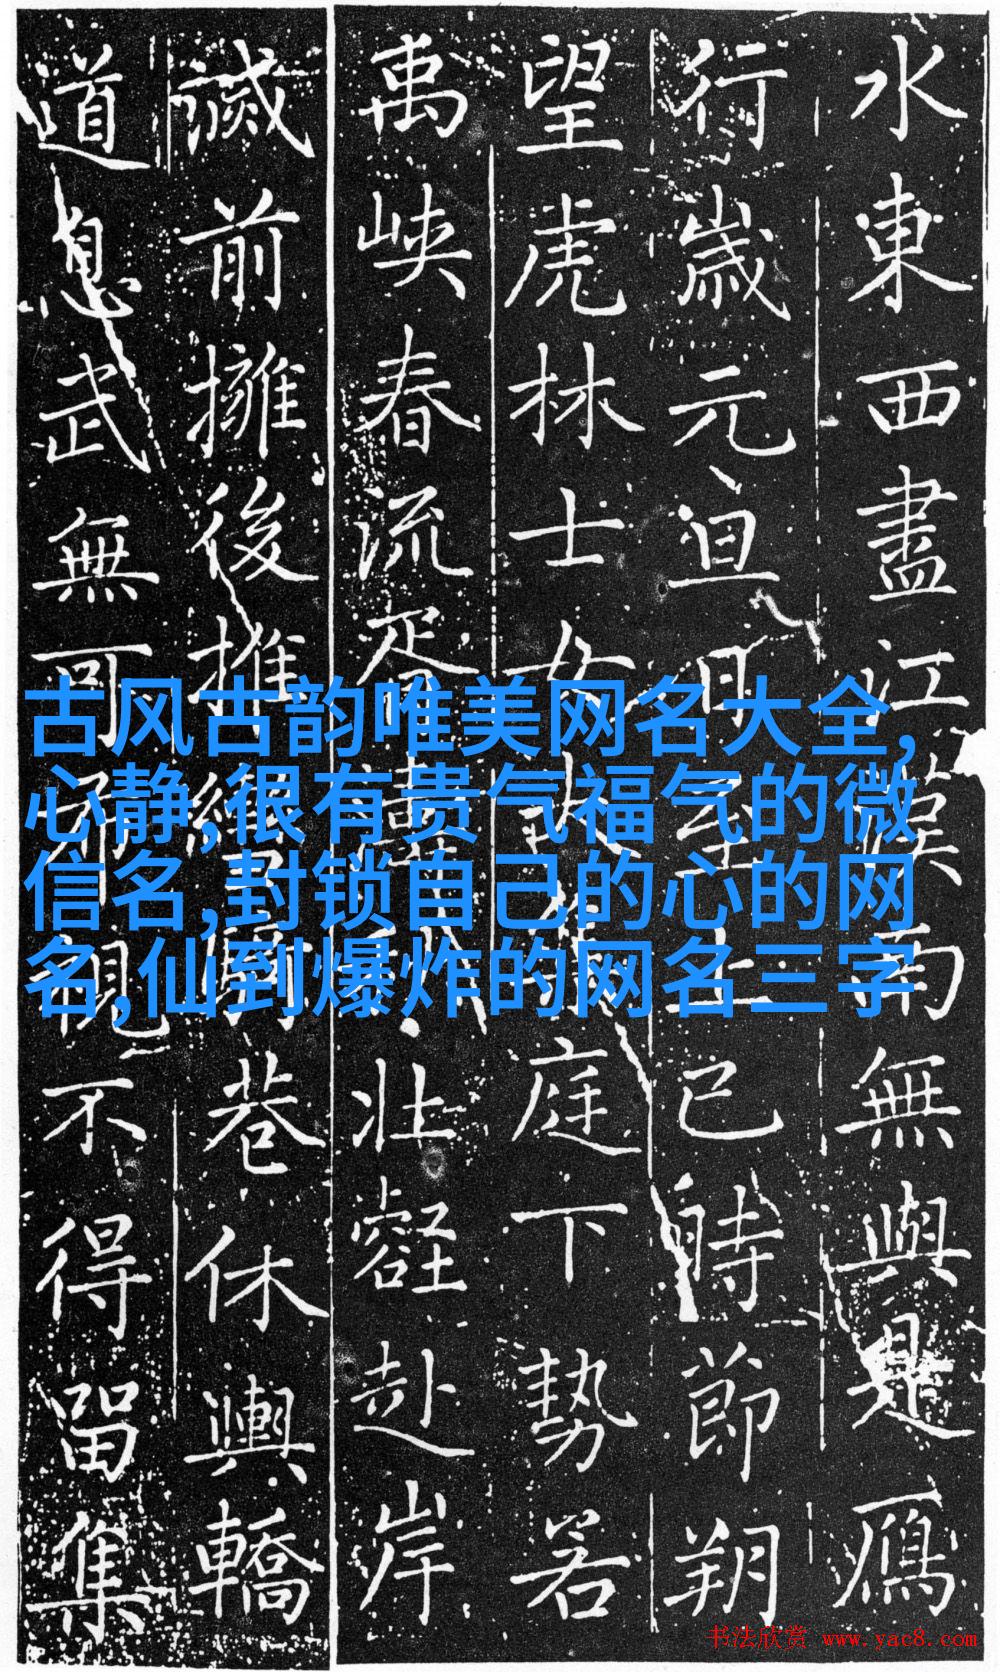 古风古韵唯美网名大全,
心静,很有贵气福气的微
信名,封锁自己的心的网
名,仙到爆炸的网名三字
水東西盡江漢南無與是鴈
行歲元旦月至上巳時節朔
望虎林士女庭下勢若
禹峽春流壯赴岸
滅前擁後推巷休輿轎
道息武無可觀不得留集
书法欣赏 www.yac8.com